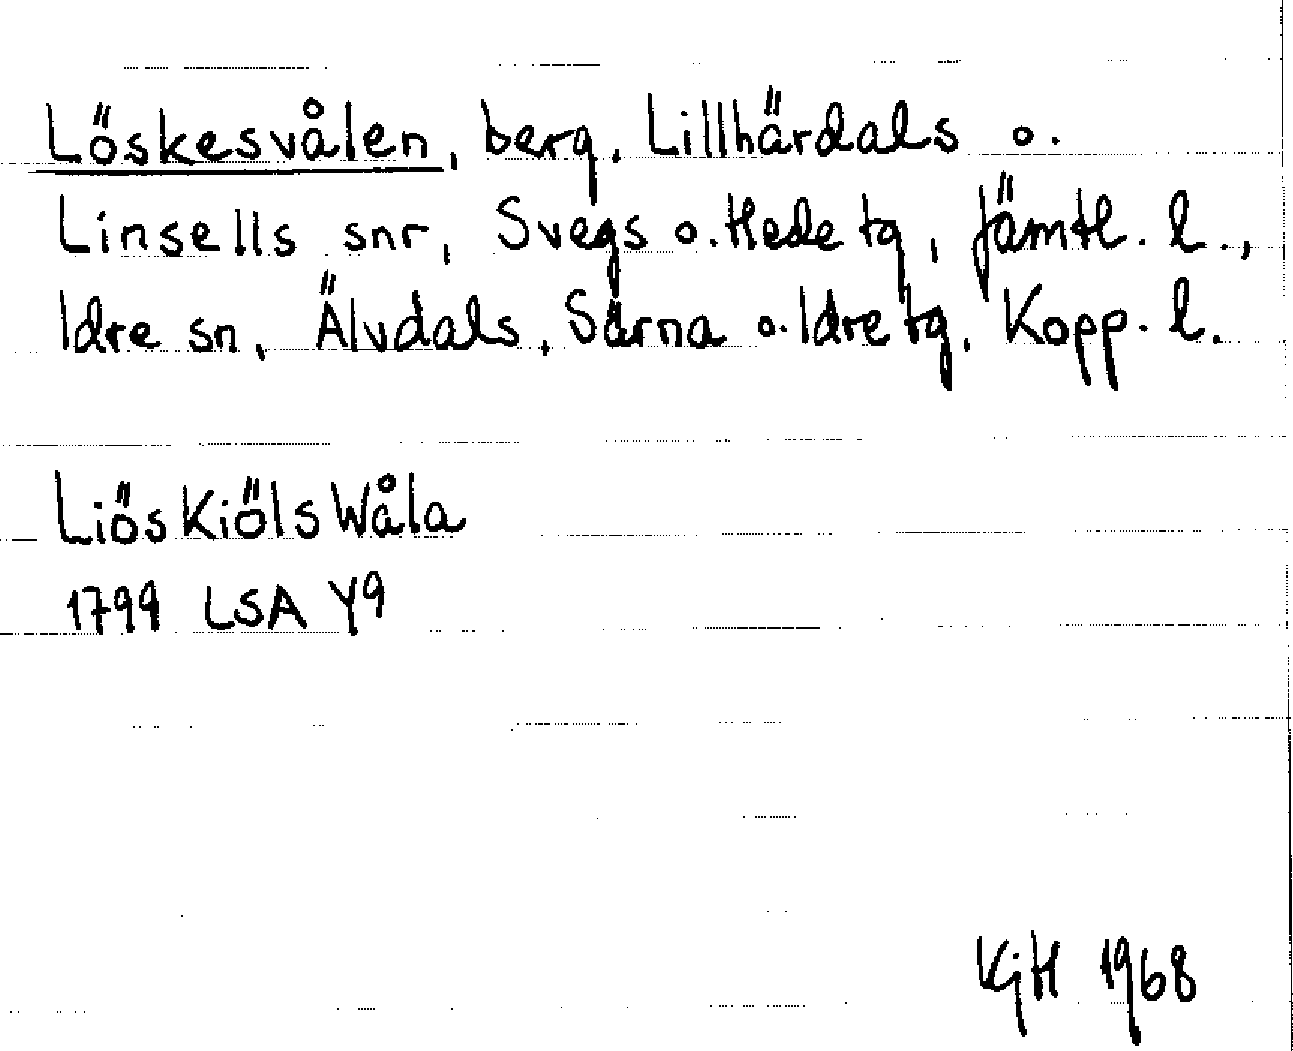 Löskesvålen, berg, Lillhärdals o.
Linsells snr, Svegs o. Hede tg, Jämtl. l.,
Idre sn, Älvdals, Särna o. Idre tg, Kopp. l.
LiösKiölsWåla
1799 LSA Y9
KjH 1968